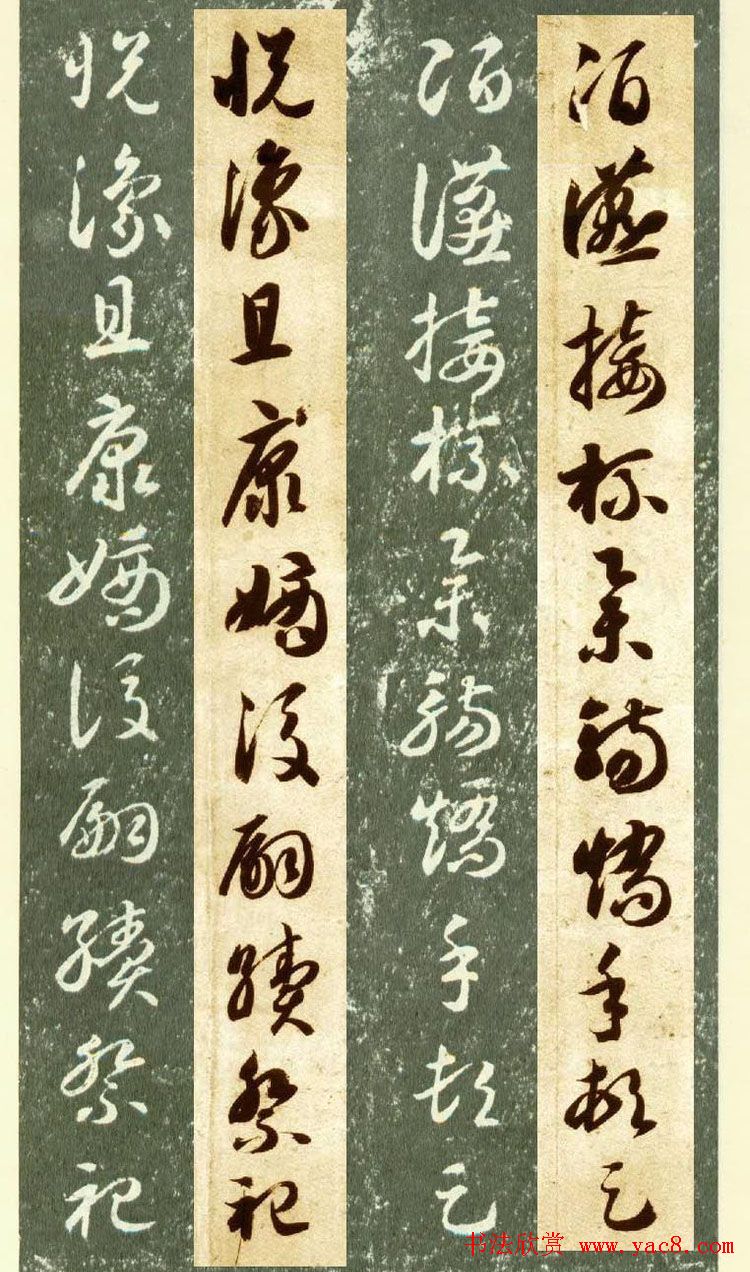 酒讌接杯舉觴矯手頓足
酒讌接杯舉觴矯手頓足
悅豫且康嫡後嗣續祭祀
悅豫且康嫡後嗣續祭祀
书法欣赏 www.yac8.com